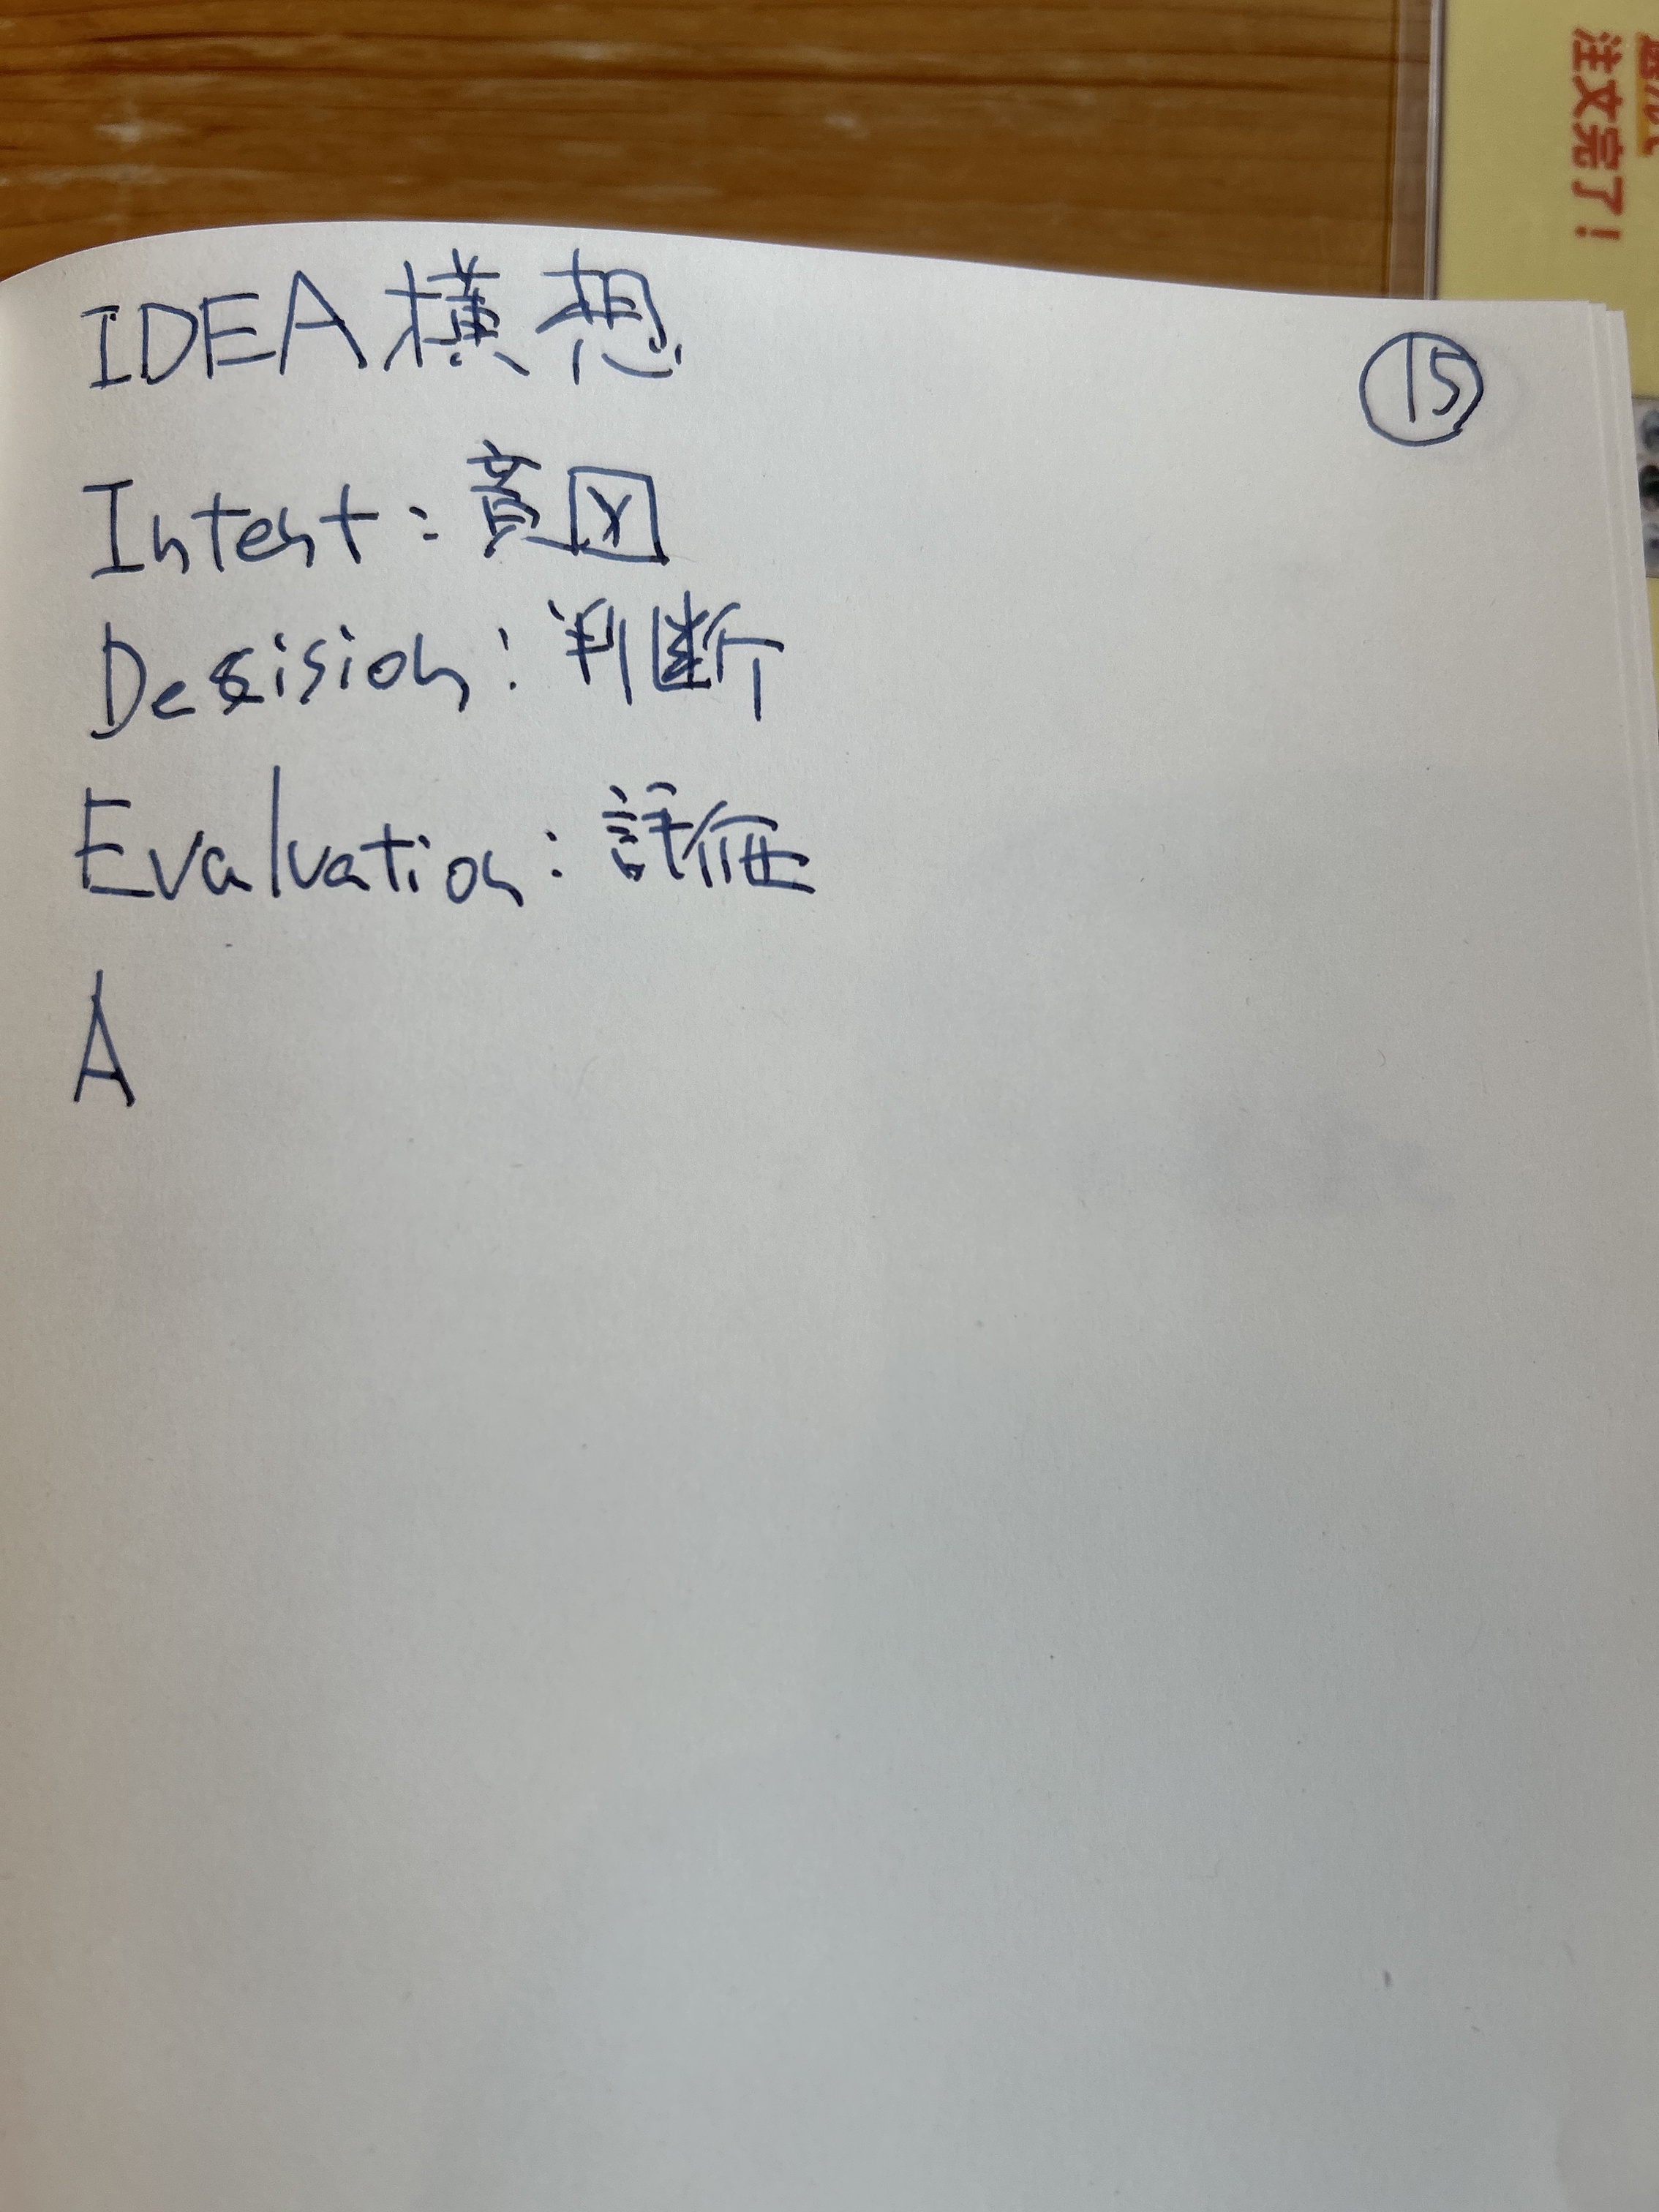 IDEA 構想
⑮
Intent：意図
Decision：判断
Evaluation：評価
A
注文完了！